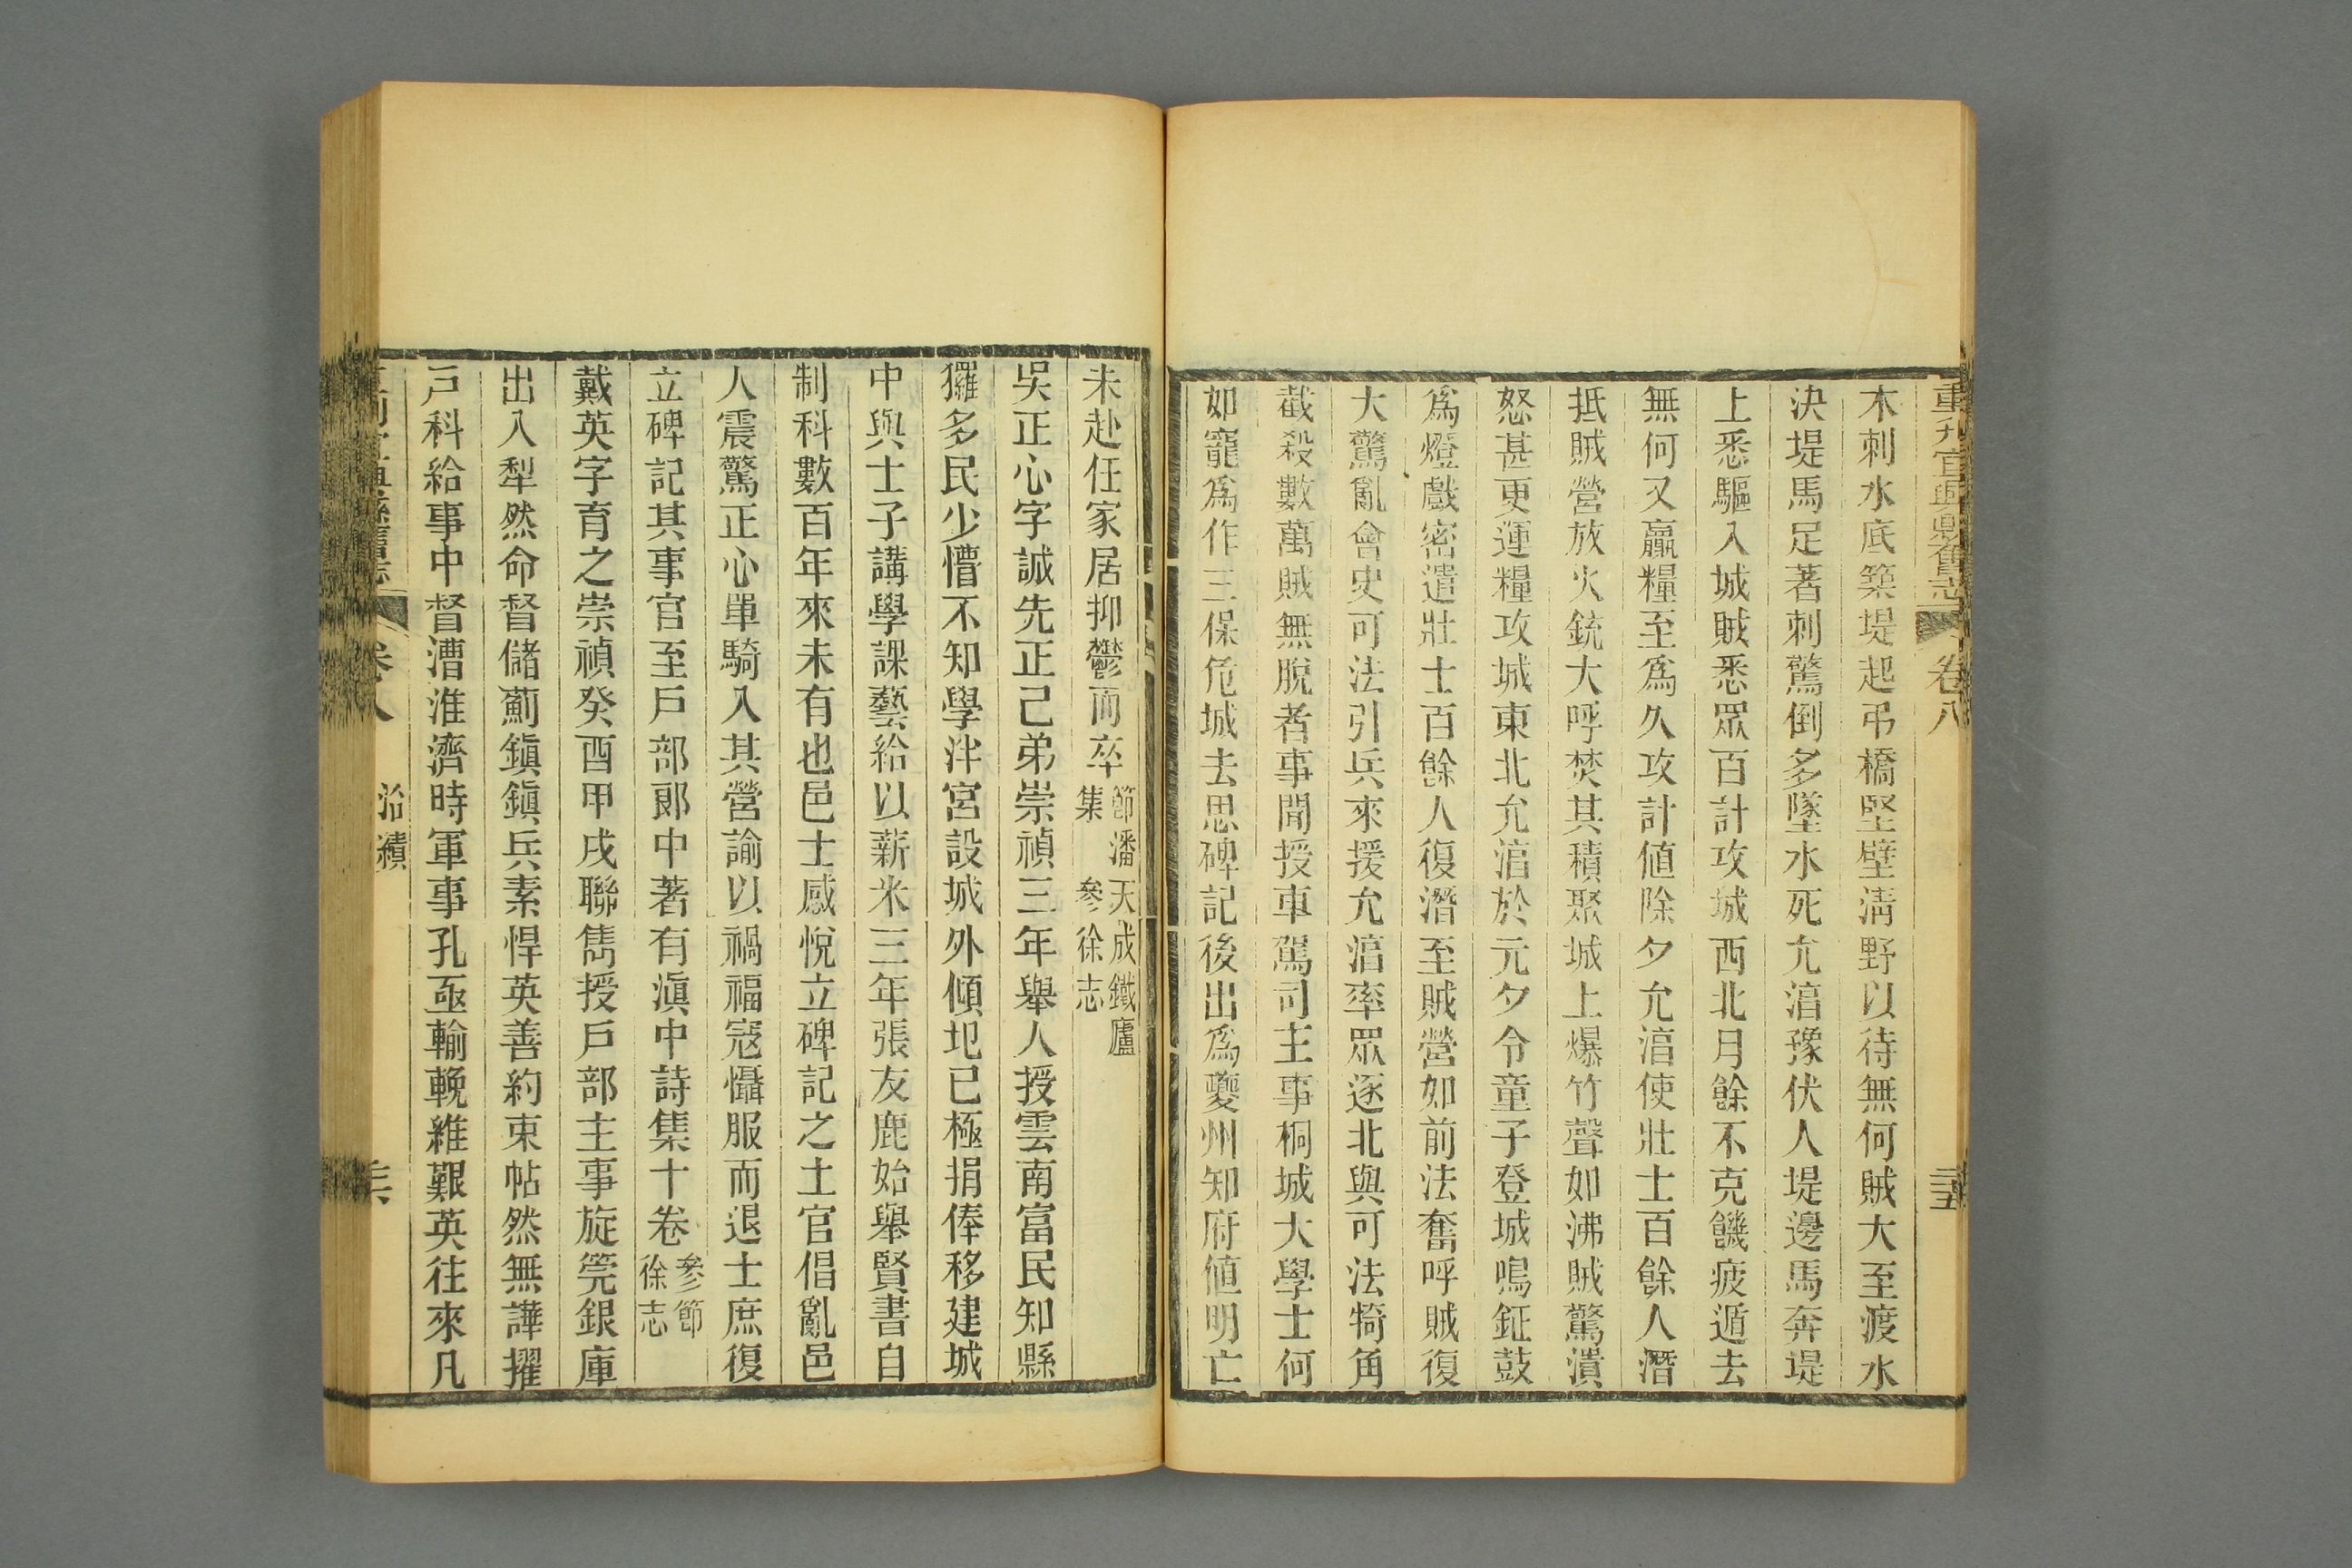 重刋宜興縣舊志 卷八 三五
木刺水底築堤起弔橋堅壁淸野以待無何賊大至渡水
決堤馬足著刺驚倒多墜水死允湻豫伏人堤邊馬奔堤
上悉驅入城賊悉眾百計攻城西北月餘不克饑疲遁去
無何又羸糧至爲久攻計値除夕允湻使壯士百餘人潛
抵賊營放火銃大呼焚其積聚城上爆竹聲如沸賊驚潰
怒甚更運糧攻城東北允湻於元夕令童子登城鳴鉦鼓
爲燈戲密遣壯士百餘人復潛至賊營如前法奮呼賊復
大驚亂會史可法引兵來援允湻率眾逐北與可法犄角
截殺數萬賊無脫者事聞授車駕司主事桐城大學士何
如寵爲作三保危城去思碑記後出爲夔州知府値明亡
未赴任家居抑鬱而卒節潘天成鐵廬集 參徐志
吳正心字誠先正己弟崇禎三年舉人授雲南富民知縣
玀多民少懵不知學泮宮設城外傾圯已極捐俸移建城
中與士子講學課藝給以薪米三年張友鹿始舉賢書自
制科數百年來未有也邑士感悅立碑記之土官倡亂邑
人震驚正心單騎入其營諭以禍福寇懾服而退士庶復
立碑記其事官至戶部郞中著有滇中詩集十卷參節徐志
戴英字育之崇禎癸酉甲戌聯雋授戶部主事旋筦銀庫
出入犁然命督儲薊鎭鎭兵素悍英善約束帖然無譁擢
戶科給事中督漕淮濟時軍事孔亟輸輓維艱英往來凡
卷八 治績